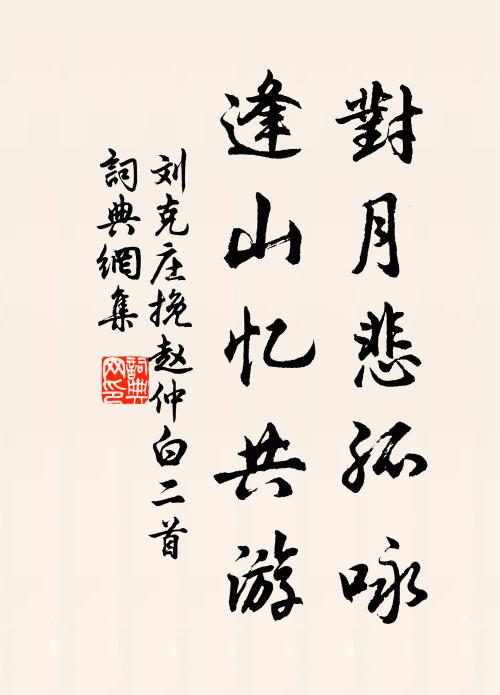 對月悲孤咏
逢山忆共游
刘克庄挽赵仲白二首
詞典網集
詞典網印